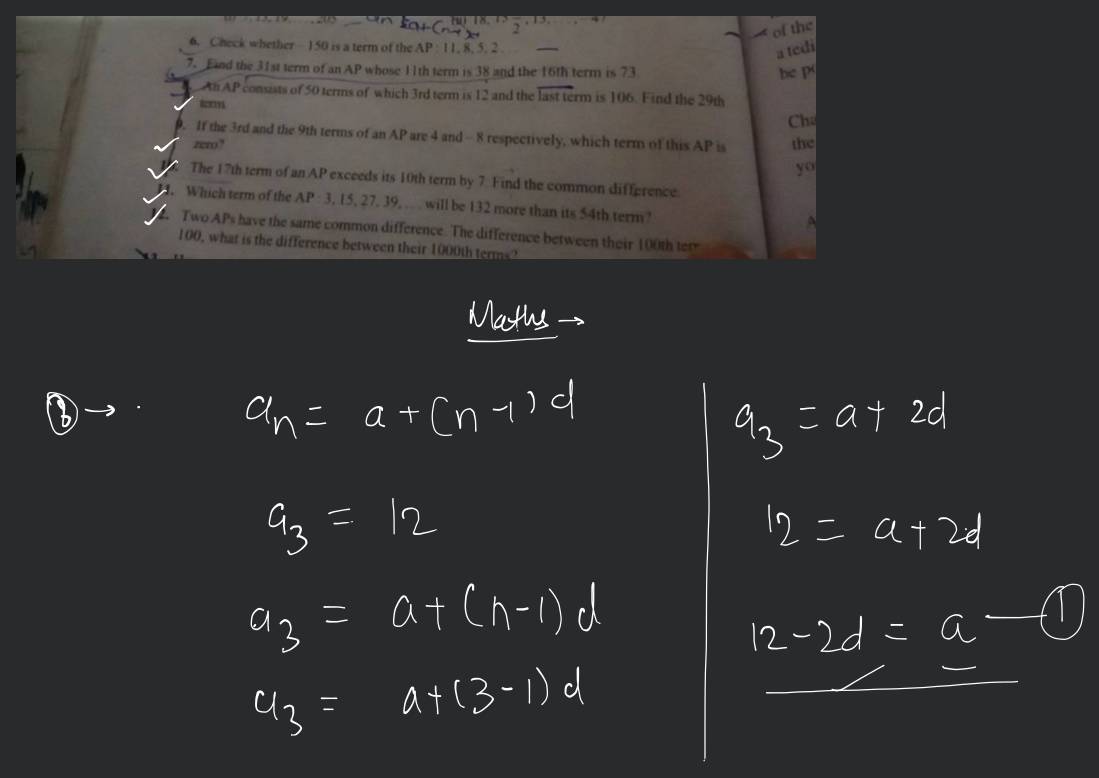 6. Check whether – 150 is a term of the AP : 11, 8, 5, 2 . . .
7. Find the 31st term of an AP whose 11th term is 38 and the 16th term is 73.
An AP consists of 50 terms of which 3rd term is 12 and the last term is 106. Find the 29th
term.
9. If the 3rd and the 9th terms of an AP are 4 and – 8 respectively, which term of this AP is
zero?
The 17th term of an AP exceeds its 10th term by 7. Find the common difference.
11. Which term of the AP : 3, 15, 27, 39, . . . will be 132 more than its 54th term?
Two APs have the same common difference. The difference between their 100th
100, what is the difference between their 1000th terms?
of the
Maths →
8 →
aₙ = a + (n - 1) d
a₃ = 12
a₃ = a + (n - 1) d
a₃ = a + (3 - 1) d
a₃ = a + 2d
12 = a + 2d
12 - 2d = a — 1